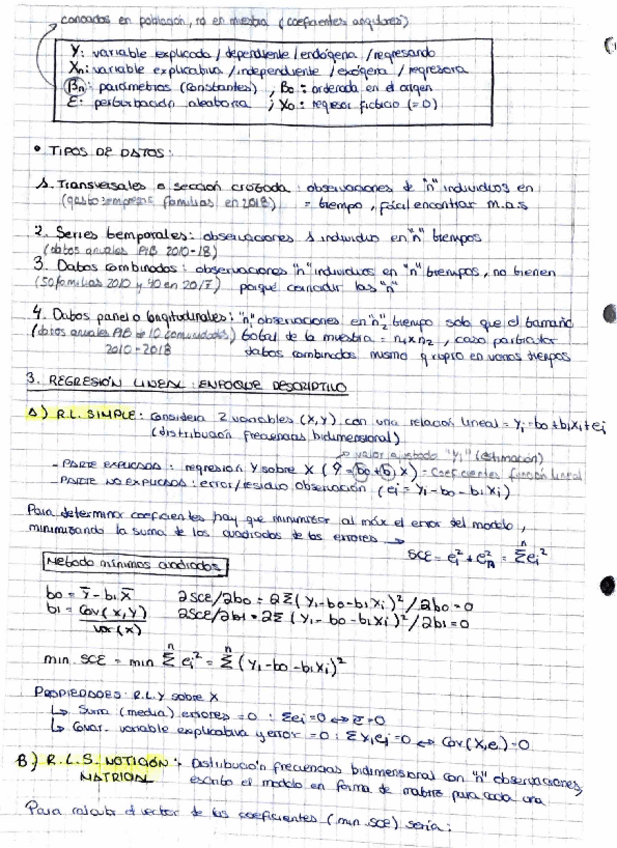 conocidos en población, no en muestra (coeficientes angulares)
Y: variable explicada / dependiente / endógena / regresando
Xn: variable explicativa / independiente / exógena / regresora
βn: parámetros (constantes), β0: ordenada en el origen
ε: perturbación aleatoria ; X0: regresor ficticio (=0)
• TIPOS DE DATOS:
1. Transversales o sección cruzada: observaciones de "n" individuos en
(gasto empresas familias en 2018) = tiempo, fácil encontrar m.a.s
2. Series temporales: observaciones 1 individuo en "n" tiempos
(datos anuales PIB 2010-18)
3. Datos combinados: observaciones "n" individuos en "n" tiempos, no tienen
(50 familias 2010 y 40 en 2017) porqué coincidir las "n"
4. Datos panel o longitudinales: "n" observaciones en "n2" tiempo solo que el tamaño
(datos anuales PIB de 10 comunidades) total de la muestra = n1xn2, caso particular
2010-2018 datos combinados mismo grupo en varios tiempos
3. REGRESIÓN LINEAL: ENFOQUE DESCRIPTIVO
A) R.L. SIMPLE: considera 2 variables (X,Y) con una relación lineal = Yi = b0+b1Xi+ei
(distribución frecuencias bidimensional)
→ valor ajustado "Yi" (estimación)
- PARTE EXPLICADA: regresión Y sobre X (Ŷ=b0+b1X) = coeficientes función lineal
- PARTE NO EXPLICADA: error/residuo observación (ei = Yi-b0-b1Xi)
Para determinar coeficientes hay que minimizar al máx el error del modelo,
minimizando la suma de los cuadrados de los errores →
SCE = e1²+en² = Σei²
Método mínimos cuadrados
b0 = Ȳ - b1X̄ ∂SCE/∂b0 = ∂Σ(Yi-b0-b1Xi)²/∂b0 = 0
b1 = Cov(X,Y)/Var(X) ∂SCE/∂b1 = ∂Σ(Yi-b0-b1Xi)²/∂b1 = 0
min SCE = min Σei² = Σ(Yi-b0-b1Xi)²
PROPIEDADES: R.L. Y sobre X
↳ Suma (media) errores = 0 : Σei=0 ⇔ ē=0
↳ Covar. variable explicativa y error = 0 : ΣXiei=0 ⇔ Cov(X,ei)=0
B) R.L.S. NOTACIÓN : Distribución frecuencias bidimensional con "n" observaciones,
MATRICIAL escribo el modelo en forma de matriz para cada una
Para calcular el vector de los coeficientes (min SCE) sería: